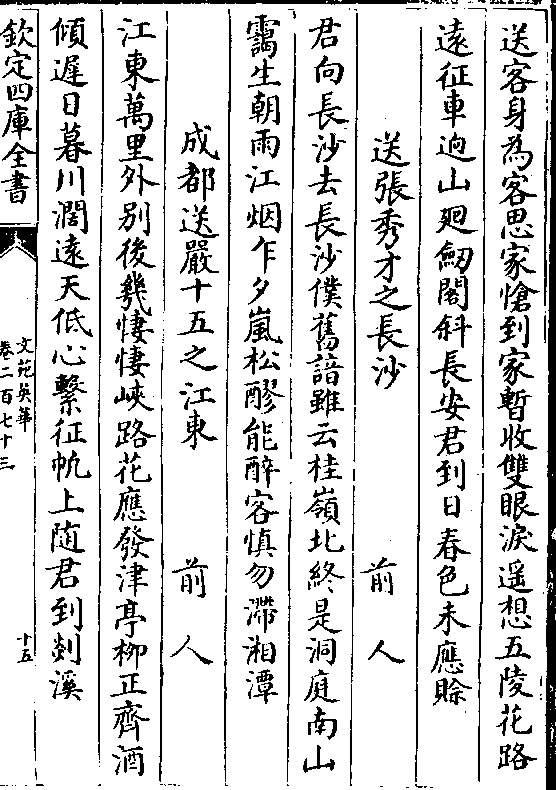 送客身為客思家愴到家暫收雙眼淚遥想五陵花路
遠征車逈山廻劒閣斜長安君到日春色未應賖
送張秀才之長沙　前人
君向長沙去長沙僕舊諳雖云桂嶺北終是洞庭南山
靄生朝雨江烟乍夕嵐松醪能醉客慎勿滯湘潭
成都送嚴十五之江東　前人
江東萬里外别後幾悽悽峽路花應發津亭栁正齊酒
傾遲日暮川濶遠天低心繫征帆上随君到剡溪
欽定四庫全書
文苑英華
卷二百七十三
十五